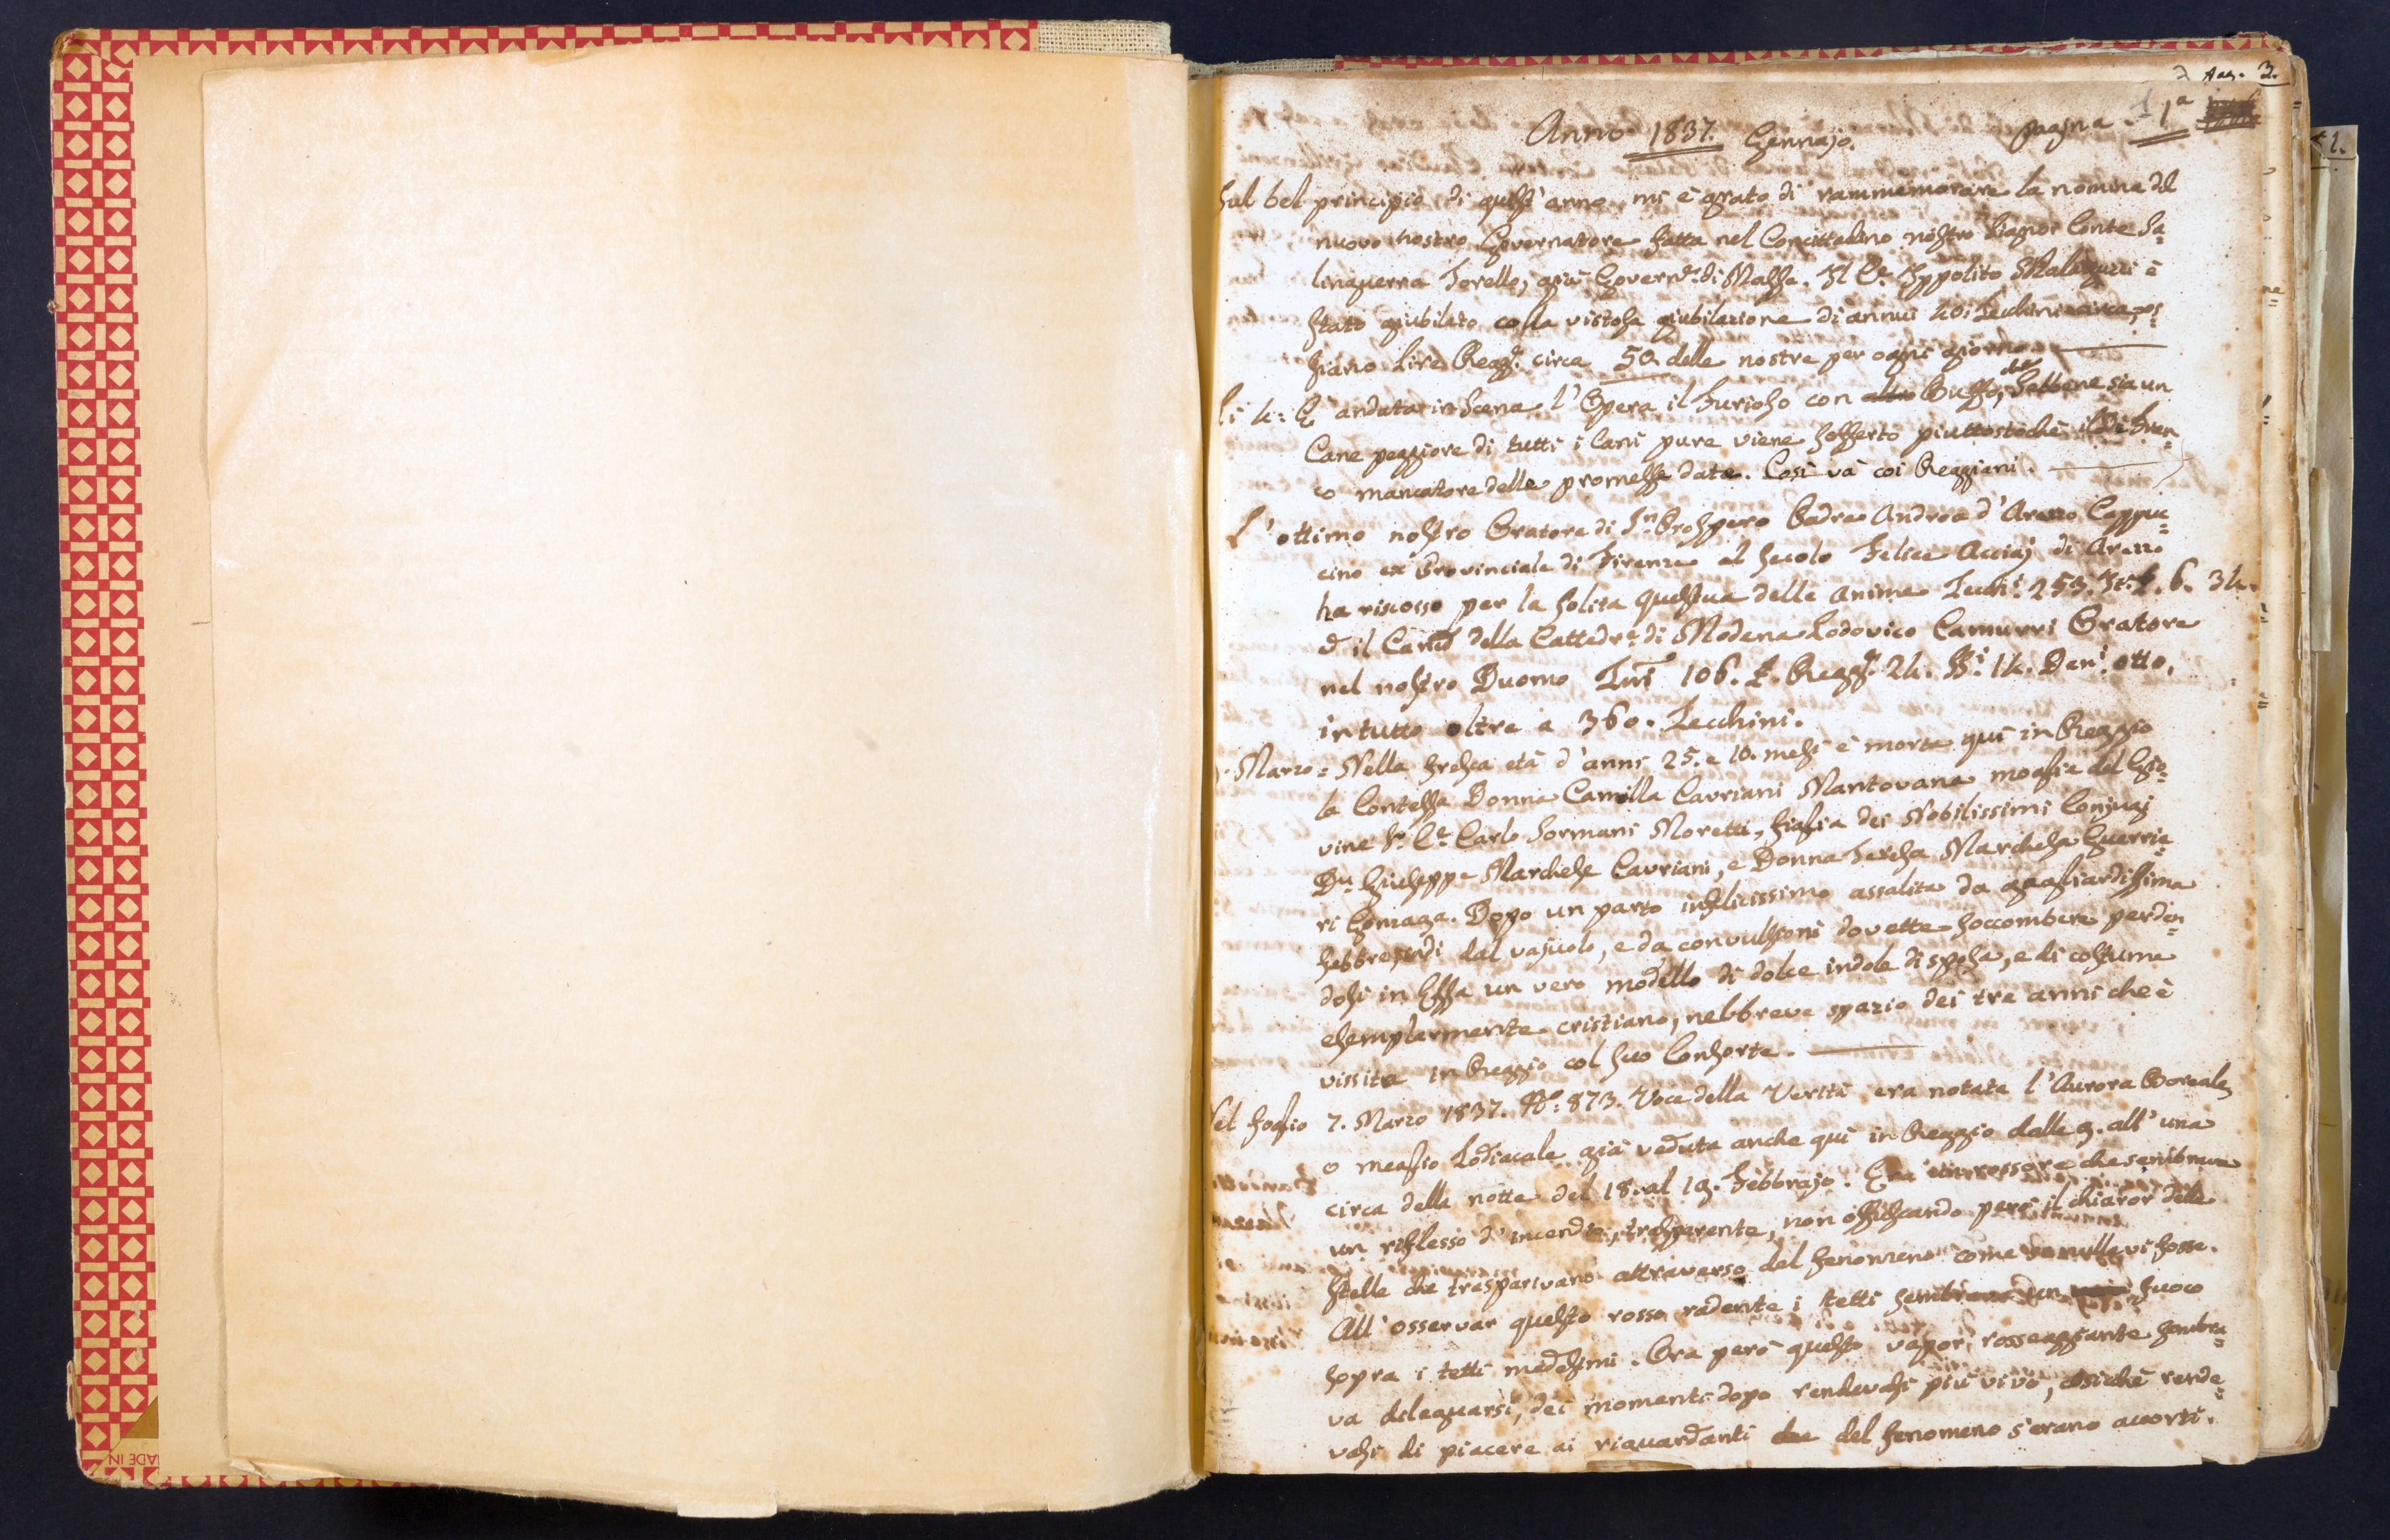 Pag. 3.
pagina 1ª
Anno 1837. Gennajo.
Sul bel principio di quest' anno mi è grato di rammemorare la nomina del
nuovo nostro Governatore fatta nel Concittadino nostro Signor Conte Sa=
linguerra Torello, già Govern.e di Massa. Il C.e Ippolito Malaguzzi è
stato giubilato colla vistosa giubilazione di annui 401 Zecchini circa, os=
siano Lire Regg.e circa 50. delle nostre per ogni giorno.
Li 4: È andata in Scena l'Opera il Furioso con altro Buffo, Sebbene sia un
Cane peggiore di tutti i Cani pure viene sofferto piuttostochè il De Fran=
co mancatore delle promesse date. Così và coi Reggiani.
L'ottimo nostro Oratore di S.n Prospero Padre Andrea d'Arezzo Cappuc=
cino ex Provinciale di Firenze al Secolo Felice Acciaj di Arezzo
ha riscosso per la solita questua delle Anime Zecch.i 253. 6. 34.
ed il Can.co della Cattedr.e di Modena Lodovico Camurri Oratore
nel nostro Duomo Zec.i 106. £. Regg.e 24. S.i 14. Den.i otto,
in tutto oltre a 360. Zecchini.
Marzo = Nella fresca età d'anni 25. e 10. mesi è morta quì in Reggio
la Contessa Donna Camilla Cavriani Mantovana moglie del Gio=
vine S.r C.e Carlo Sormani Moretti, figlia dei Nobilissimi Conjugi
D.n Giuseppe Marchese Cavriani, e Donna Teresa Marchesa Guerrie=
ri Gonzaga. Dopo un parto infelicissimo assalita da gagliardissima
febbre, indi dal vajuolo, e da convulsioni dovette soccombere perden=
dosi in Essa un vero modello di dolce indole di sposa, e di costume
esemplarmente cristiano, nel breve spazio dei tre anni che è
vissita in Reggio col suo Consorte.
Nel foglio 7. Marzo 1837. N.o: 873. Voce della Verità era notata l'Aurora Boreale,
o meglio Zodiacale già veduta anche quì in Reggio dalle 9. all' una
circa della notte del 18. al 19. Febbrajo. Era un rossore che sembrava
un riflesso d'incendio, trasparente, non offuscando però il chiaror delle
stelle che trasparivano attraverso del fenomeno come se nulla vi fosse.
All' osservar questo rosso radente i tetti sembrava un fuoco
sopra i tetti medesimi. Ora però questo vapor rosseggiante sembra=
va dileguarsi, dei momenti dopo rendevasi più vivo, cosichè rende=
vasi di piacere ai riguardanti che del fenomeno s'erano accorti.
MADE IN